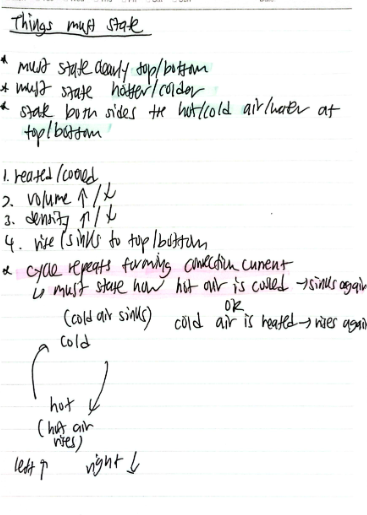 Things must state
* must state clearly top/bottom
* must state hotter/colder
* state both sides the hot/cold air/water at
top/bottom
1. heated/cooled
2. volume ↑/↓
3. density ↑/↓
4. rise/sinks to top/bottom
* cycle repeats forming convection current
↳ must state how hot air is cooled → sinks again
OR
(cold air sinks) cold air is heated → rises again
cold
hot
(hot air
rises)
left ↑ right ↓